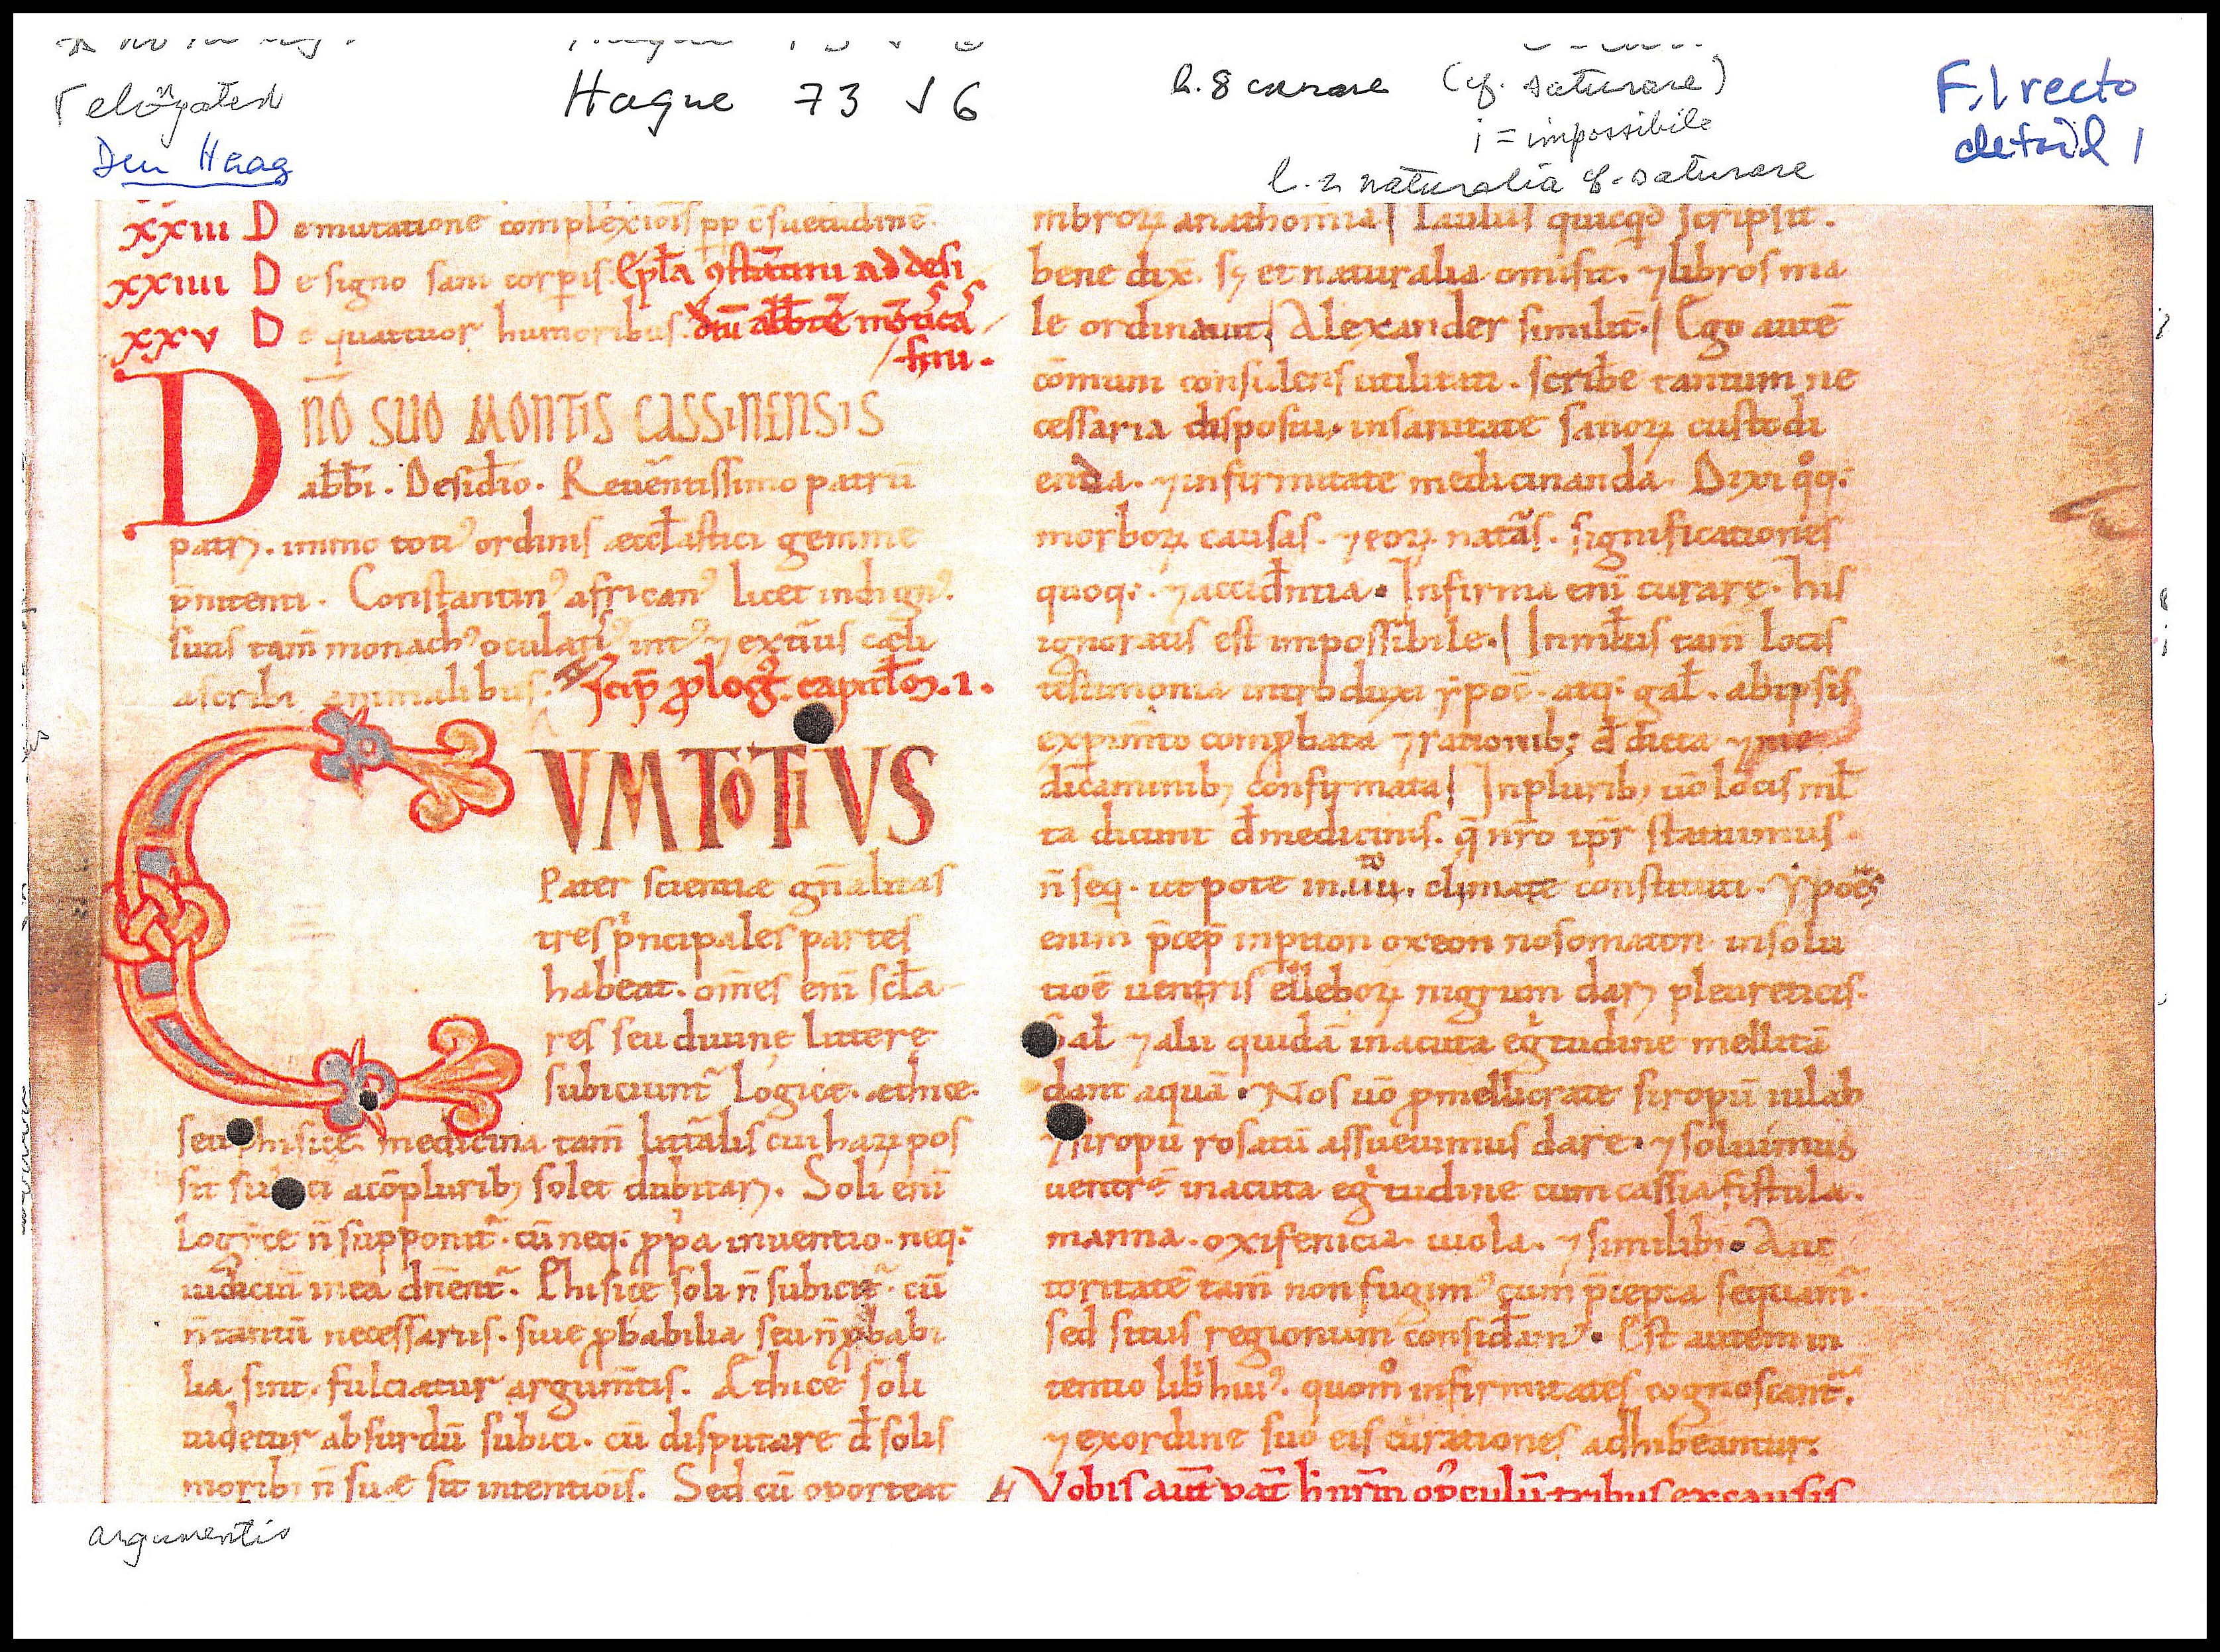 Hague 73 J 6
l. 8 curare (cf. saturare)
i = impossibile
l. 2 naturalia cf. saturare
F. 1 recto
detail 1
elōgated
Den Haag
xxiii De mutatione complexiōīſ ꝓꝑ cſuetudinē.
xxiiii De ſigno ſani corꝑis. Epła ꝯſtātini ad deſi
xxv De quattuor humoribuſ. diū abbtē mōtiſ caſ
ſini.
DNŌ SUO MONTIS CASSINENSIS
abbi. Deſidio. Reuēntiſſimo patrū
patꝝ. immo totiꝰ ordiniſ æccłaſtici gemme
pnitenti. Conſtantinꝰ africanꝰ licet indignꝰ.
ſuuſ tam̄ monachꝰ oculatiſ intꝰ ⁊ extiuſ cæli
aſcribi animalibuſ. Jcip̄ ꝓlogꝰ. capitłoꝝ. 1.
CVM TOTIVS
Pater ſcientiæ gn̄alitaſ
treſ pncipaleſ parteſ
habeat. om̄eſ eni ſcła
reſ ſeu diuinę littere
ſubiciunt̃ logice. æthice.
ſeu phiſice. medicina tam̄ litt̄aliſ cui haꝝ poſ
ſit ſubici a cōpluribꝫ ſolet dubitaꝝ. Soli enī
Logice n̄ ſupponit̃. cū neq: ꝓpa inuentio. neq:
iudiciū in ea dn̄ent̃. Phiſice ſoli n̄ ſubicit̃. cū
n̄ tantū neceſſariiſ. ſiue ꝓbabilia ſeu n̄ ꝓbabi
lia ſint. fulciatur argum̄tiſ. Æthice ſoli
uidetur abſurdū ſubici. cū diſputare đ ſoliſ
morib; n̄ ſuæ ſit intentiōiſ. Sed cū oporteat
mbroꝝ anathomia| Pauluſ quicqđ ſcripſit.
bene dix̄. ſꝫ et naturalia omiſit. ⁊ libroſ ma
le ordinauit| Alexander ſimilit̄.| Ego autē
cōmuni conſulenſ utilitati. ſcribe tantum ne
ceſſaria diſpoſui. in ſanitate ſanoꝝ cuſtodi
enda. ⁊ infirmitate medicinanda. Dixi qq:
morboꝝ cauſaſ. ⁊ eoꝝ natāſ. ſignificationeſ
quoq:. ⁊ accid̄ntia. Infirma enī curare. hiſ
ignoratiſ eſt impoſſibile.| In mltiſ tam̄ lociſ
teſtimonia introduxi ypoc̄. atq: gał. ab ipſiſ
exꝑim̄to comꝓbata ⁊ rationib; đ dieta ⁊ me
dicaminibꝫ confirmata| In pluribꝫ uō lociſ mł
ta dicunt đ medicinis. q̄ nr̄o tꝑr ſtatuimuſ
n̄ ſeq̄. utpote in .uii. climate conſtituti. Ypoc̄ſ
enim p̄cep̄ in piton oxeon noſomaton in ſolu
tiōē uentriſ elleboꝝ nigrum daꝝ pleureticiſ.
Gał ⁊ alii quidā in acuta egtudine mellitā
dant aquā. Nos uō ꝓ mellicrate ſiropū iulab
⁊ ſiropū roſatū aſſueuimus dare. ⁊ ſoluimus
uentrē in acuta egtudine cum caſſia fiſtula.
manna. oxifenicia. uiola. ⁊ ſimilib;. Auc
toritatē tam̄ non fugimꝰ cum p̄cepta ſequam̃.
ſed ſituſ regionum conſid̄amꝰ. Eſt autem in
tentio libri huiꝰ. quom̊ infirmitateſ cognoſcant̃.
⁊ ex ordine ſuo eiſ curationeſ adhibeantur.
Vobiſ aūt pat̄ huiꝰm opꝰculū tribuſ ex cauſiſ
argumentis